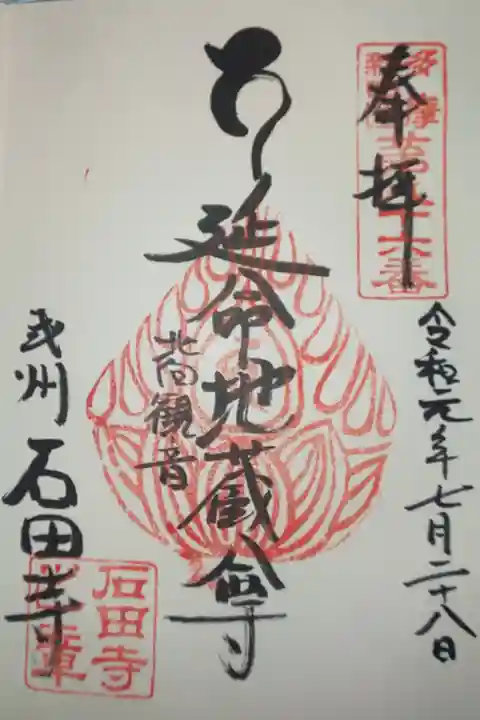 奉拝
令和元年七月二十八日
延命地蔵尊
北向観音
武州 石田寺
石田寺